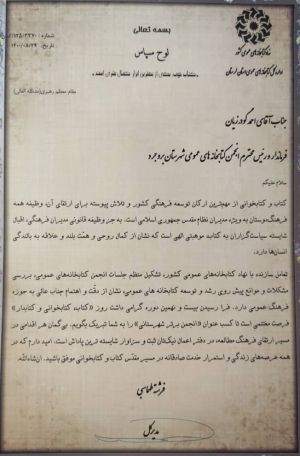 بسمه تعالی
شماره: ۱۱۳۵/۳۳۶۰
تاریخ: ۱۴۰۰/۰۸/۲۹
لوح سپاس
مقام معظم رهبری(مدظله العالی)
جناب آقای احمد گودرزیان
فرماندار و رئیس محترم انجمن کتابخانه‌های عمومی شهرستان بروجرد
سلام علیکم
کتاب و کتابخوانی از مهم‌ترین ارکان توسعه فرهنگی کشور و تلاش پیوسته برای ارتقای آن، وظیفه همه
فرهنگ‌دوستان به ویژه مدیران نظام مقدس جمهوری اسلامی است. به جز وظیفه قانونی مدیران فرهنگی، اقبال
شایسته سیاست‌گزاران به کتاب، موهبتی الهی است که نشان از کمال روحی و همت بلند و علاقه به بالندگی
انسان‌ها دارد.
تعامل سازنده با نهاد کتابخانه‌های عمومی کشور، تشکیل منظم جلسات انجمن کتابخانه‌های عمومی، بررسی
مشکلات و موانع پیش روی رشد و توسعه کتابخانه های عمومی، نشان از دقت و اهتمام جناب عالی به حوزه
فرهنگ عمومی دارد. فرا رسیدن بیست و نهمین دوره گرامی داشت روز «کتاب، کتابخوانی و کتابدار»
فرصت مغتنمی است تا کسب عنوان «انجمن برتر شهرستانی» را به شما تبریک بگویم. بی‌گمان هر اقدامی در
مسیر ارتقای فرهنگ مطالعه، در دفتر اعمال نیک‌تان ثبت و سزاوار شایسته ترین پاداش است. امید دارم که در
همه عرصه‌های زندگی و استمرار خدمت صادقانه در مسیر مقدس کتاب و کتابخوانی موفق باشید. ان‌شاءالله.
فرشته طهماسبی
مدیرکل